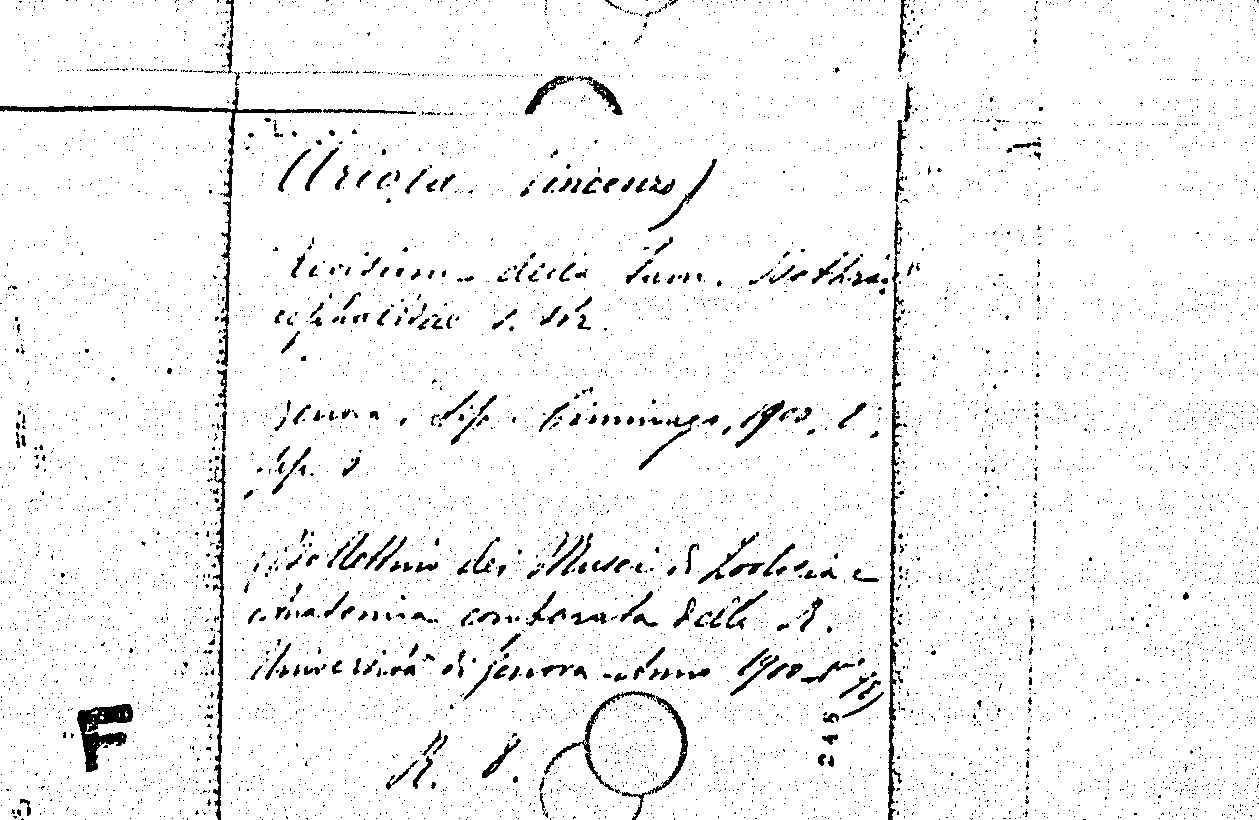 Ariola Vincenzo)
Revisione della Fam. Bothrio
cefalidae s. str.
Genova, Tip. Ciminago, 1900. 8.
Bollettino dei Musei di Zoologia e
Anatomia comparata della R.
Università di Genova Anno 1900
R. 8.
F
245